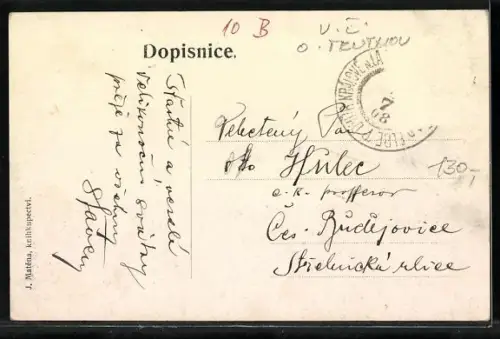 10 B
V. Č.
O. TRUTNOV
Dopisnice.
Šťastné a veselé
velikonoční svátky
přeje za všechny
Velectěný Pan
Hulec
c. k. professor
Čes. Budějovice
Střelnická ulice
130,-
KRÁLOVÉ n.L.
7
08
J. Matěna, knihkupectví.